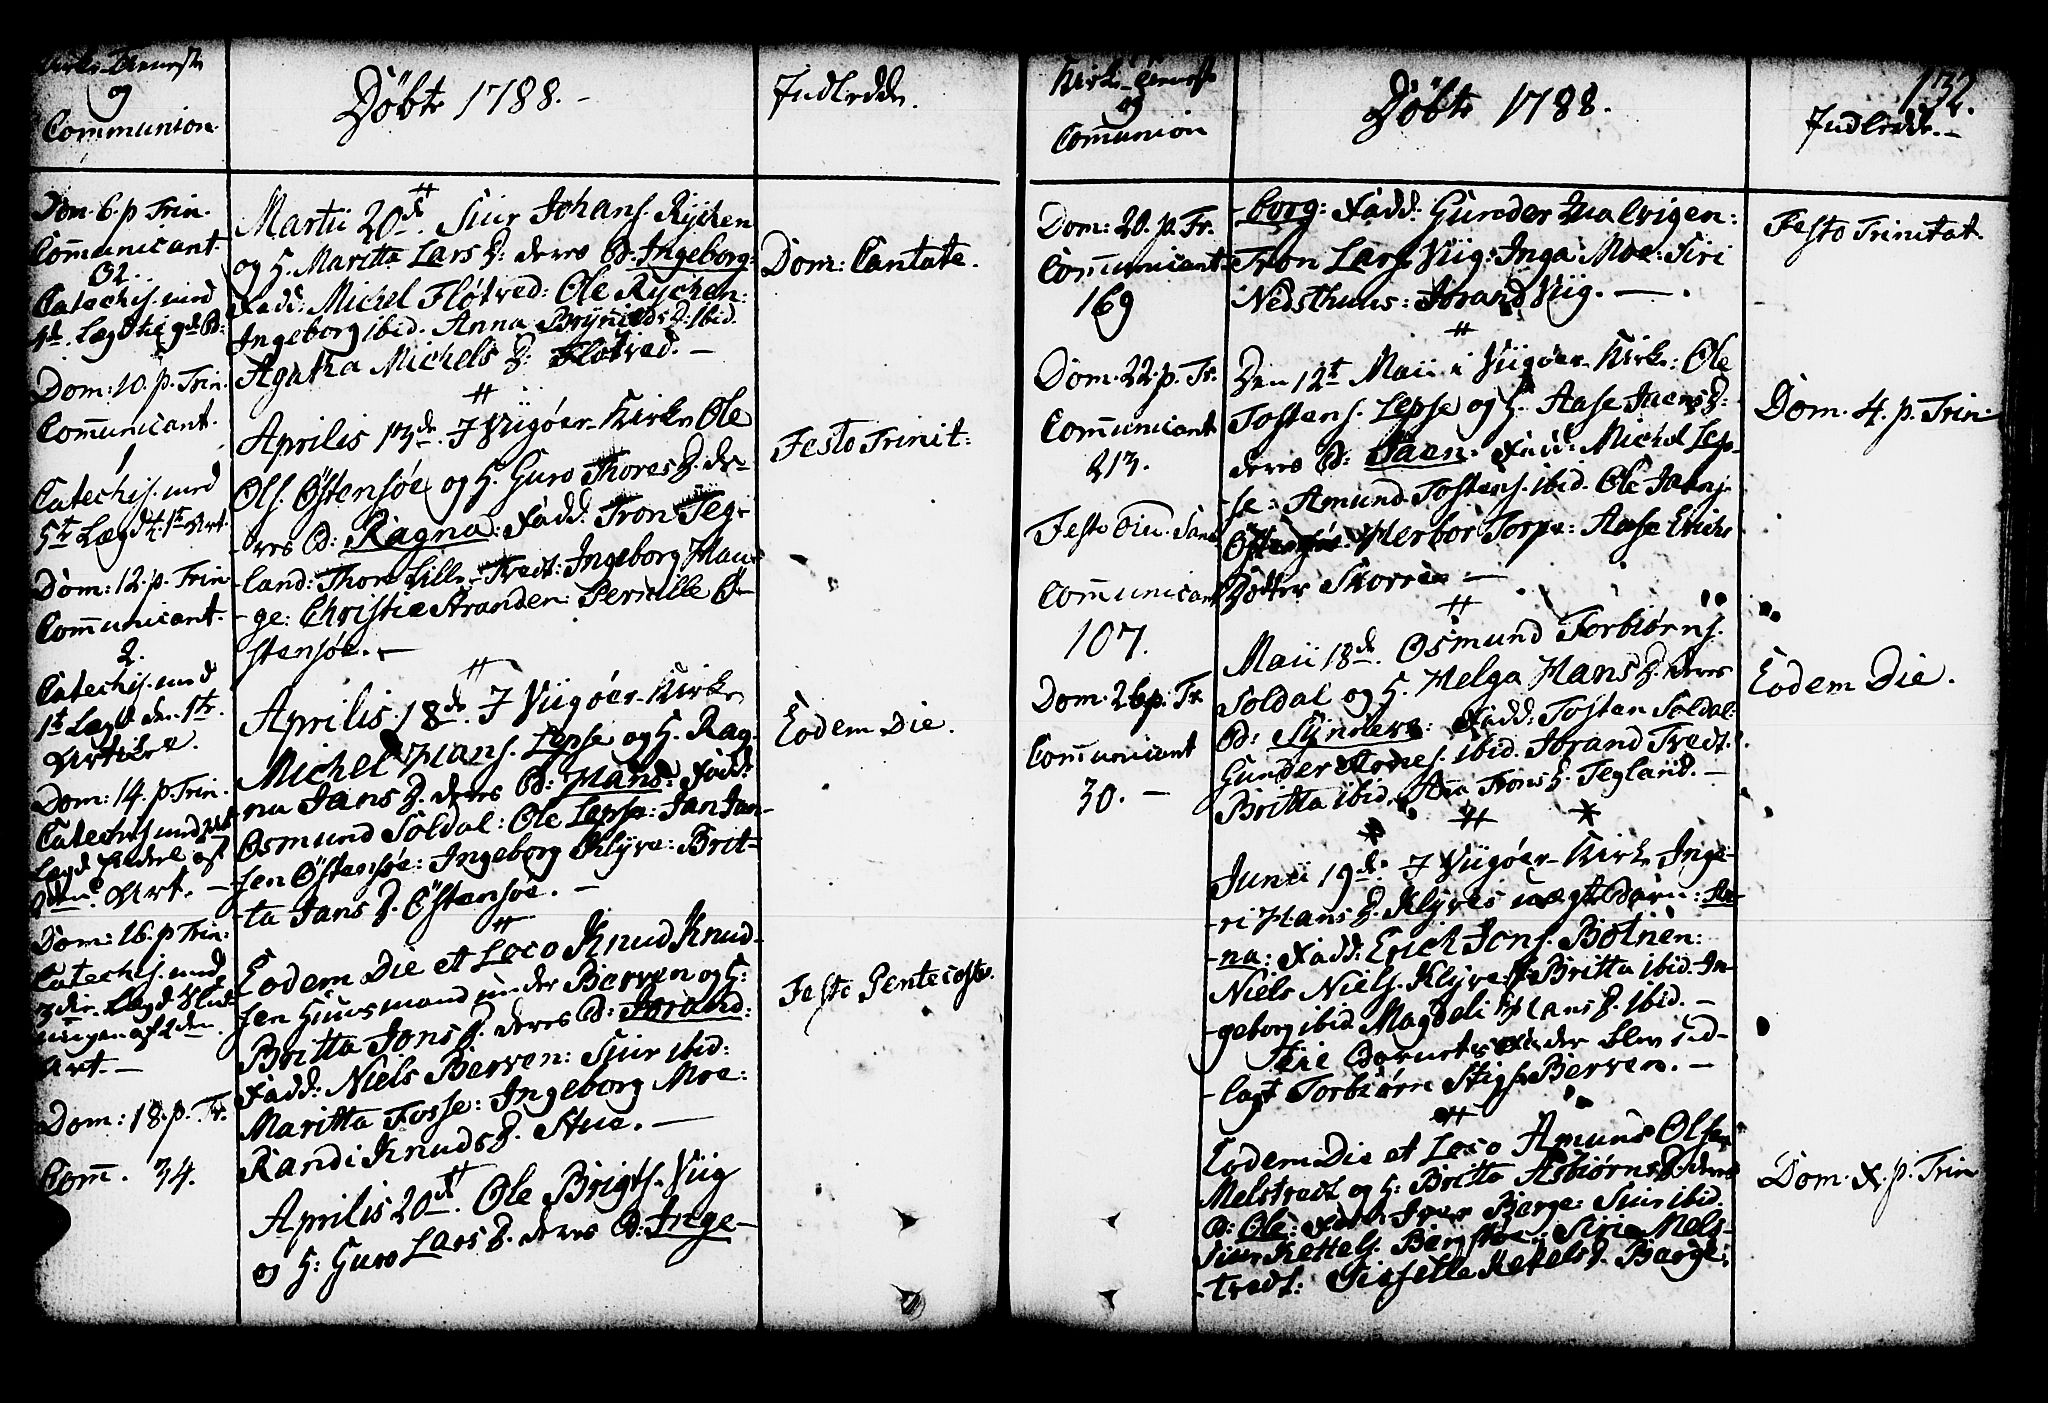 Kirke-Tieneste
og
Communion.
Dom. 6. p. Trin.
Communicant.
Catechis. med
Dom: 10. p. Trin.
Communicant.
1
Catechis. med
5te Lægd
Dom: 12. p. Trin
Communicant.
2.
Catechis. med
1te Lægd den 1te
Artikel.
Dom: 14. p. Trin.
Catechis med
Lægd
Art. –
Dom: 16. p Trin:
Catechis. med
3die Lægd
af 2den
Art. –
Dom: 18. p. Tr.
Com̄. 34.
Döbte 1788. –
Martii 20de. Siur Johans. Rÿcken
og H. Maritta Lars D. deres B. Ingeborg:
Fadd: Michel Flötved: Ole Rÿcken:
Ingeborg ibid. Anna Brÿnields D. ibid.
Agatha Michels D. Flotved. –
Aprilis 13de. I Viigöer Kirke Ole
Ols. Östensöe og H. Guro Thores D. de-
-res B: Ragna: Fadd: Tron Teg-
land: Thore Lille-Tvedt: Ingeborg Hau-
-ge: Christie Stranden: Pernille Ö-
stensöe. –
Aprilis 18de. I Viigöer Kirke
Michel Hans. Lepse og H. Rag-
na Jans D. deres B: Hans: Fadd:
Osmund Soldal: Ole Lepse: Jan Jan-
sen Östensöe: Ingeborg Klÿve: Brit-
-ta Jans D. Östensöe. –
Eodem Die et Loco Knud Knud-
sen Huusmand under Berven og H:
Britta Jons D. deres B: Jorand:
Fadd: Niels Berven: Siur ibid:
Maritta Fosse: Ingeborg Moe:
Randi Knuds D. Stue. –
Aprilis 20de. Ole Brigts. Viig
og H: Guro Lars D. deres B: Inge-
Indledde.
Dom: Cantate.
Festo Trinit:
Eodem Die.
Festo Pentecost.
Kirke-Tieneste
og
Com̄union
Dom: 20. p. Tr.
Com̄unicant
169
Dom. 22. p. Tr.
Com̄unicant
213.
Festo Om̄. Sanct
Com̄unicant
107.
Dom. 26 p. Tr.
Com̄unicant
30. –
Döbte 1788.
-borg: Fadd: Gunder Qualvigen:
Tron Lars. Viig: Inga Moe: Siri
Nedsthuus: Jorand Viig. –
Den 12te Maii i Viigöer Kirke: Ole
Tostens. Lepse og H. Aase Jaens D:
deres B: Jaen: Fadd: Michel Lep-
se: Amund Tostens. ibid. Ole Jaens.
Östensöe: Herbor Torpe: Aase Erichs
Dotter Skorren –
Maii 18de. Osmund Torbiörns.
Soldal og H. Helga Hans D. deres
B: Sÿnneve: Fadd: Tosten Soldal:
Gunder ibid. Jorand Tvedt:
Britta ibid. Trons D. Tegland. –
Junii 19de. I Viigöer Kirke Inge-
-ri Hans D. Klÿves uægte Barn: An-
-na: Fadd: Erich Jons. Botnen:
Niels Niels. Klÿve: Britta ibid. In-
-geborg ibid. Magdeli Hans D. ibid. –
Til Barnets Fader blev ud-
-lagt Torbiörn Stigs. Berven. –
Eodem Die et Loco Amund Olsen
Melstvedt og H: Britta Asbiörns D. deres
B: Ole: Fadd: Iver Berge: Siur ibid.
Siur Kettels. Bergstöe: Siri Mels-
-tvedt: Giertelle Ketels D. Berge:
132.
Indledde. –
Festo Trinitat.
Dom. 4. p. Trin.
Eodem Die.
Dom. X. p. Trin